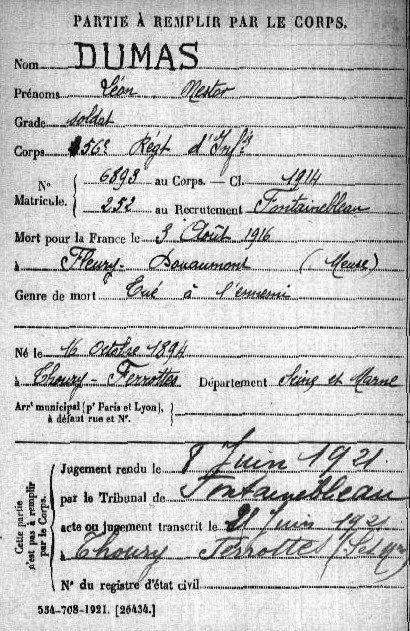 PARTIE À REMPLIR PAR LE CORPS.
Nom DUMAS
Prénoms Léon Nestor
Grade soldat
Corps 56e Régt d'Infie
No Matricule. 6893 au Corps. — Cl. 1914
252 au Recrutement Fontainebleau
Mort pour la France le 3 Août 1916
à Fleury-Douaumont (Meuse)
Genre de mort Tué à l'ennemi
Né le 16 Octobre 1894
à Thoury-Ferrottes Département Seine et Marne
Arrt municipal (pr Paris et Lyon),
à défaut rue et No.
Cette partie n'est pas à remplir par le Corps.
Jugement rendu le 8 Juin 1921
par le Tribunal de Fontainebleau
acte ou jugement transcrit le 21 Juin 1921
à Thoury Ferrottes
No du registre d'état civil
534-708-1921. [26434.]